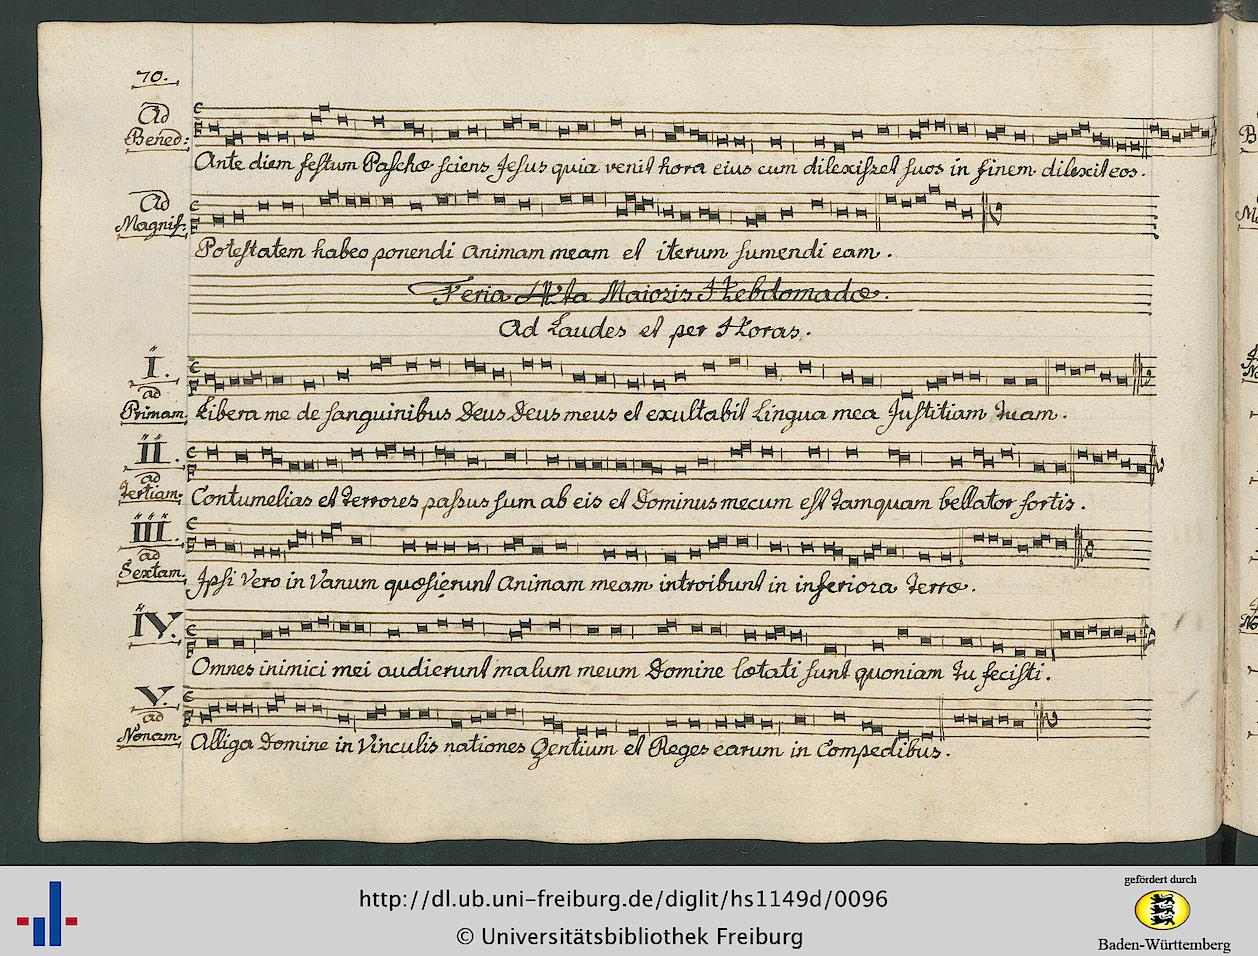 70.
Ad
Bened:
Ante diem festum Paschæ sciens Jesus quia venit hora eius cum dilexisset suos in finem dilexit eos.
Ad
Magnif:
Potestatem habeo ponendi animam meam et iterum sumendi eam.
Feria Maioris Hebdomadæ.
Ad Laudes et per Horas.
I.
ad
Primam.
Libera me de sanguinibus Deus Deus meus et exultabit Lingua mea Justitiam tuam.
II.
ad
Tertiam.
Contumelias et terrores passus sum ab eis et Dominus mecum est tamquam bellator fortis.
III.
ad
Sextam.
Ipsi vero in vanum quæsierunt animam meam introibunt in inferiora terræ.
IV.
Omnes inimici mei audierunt malum meum Domine lætati sunt quoniam tu fecisti.
V.
ad
Nonam.
Alliga Domine in vinculis nationes Gentium et Reges earum in Compedibus.
http://dl.ub.uni-freiburg.de/diglit/hs1149d/0096
© Universitätsbibliothek Freiburg
gefördert durch
Baden-Württemberg